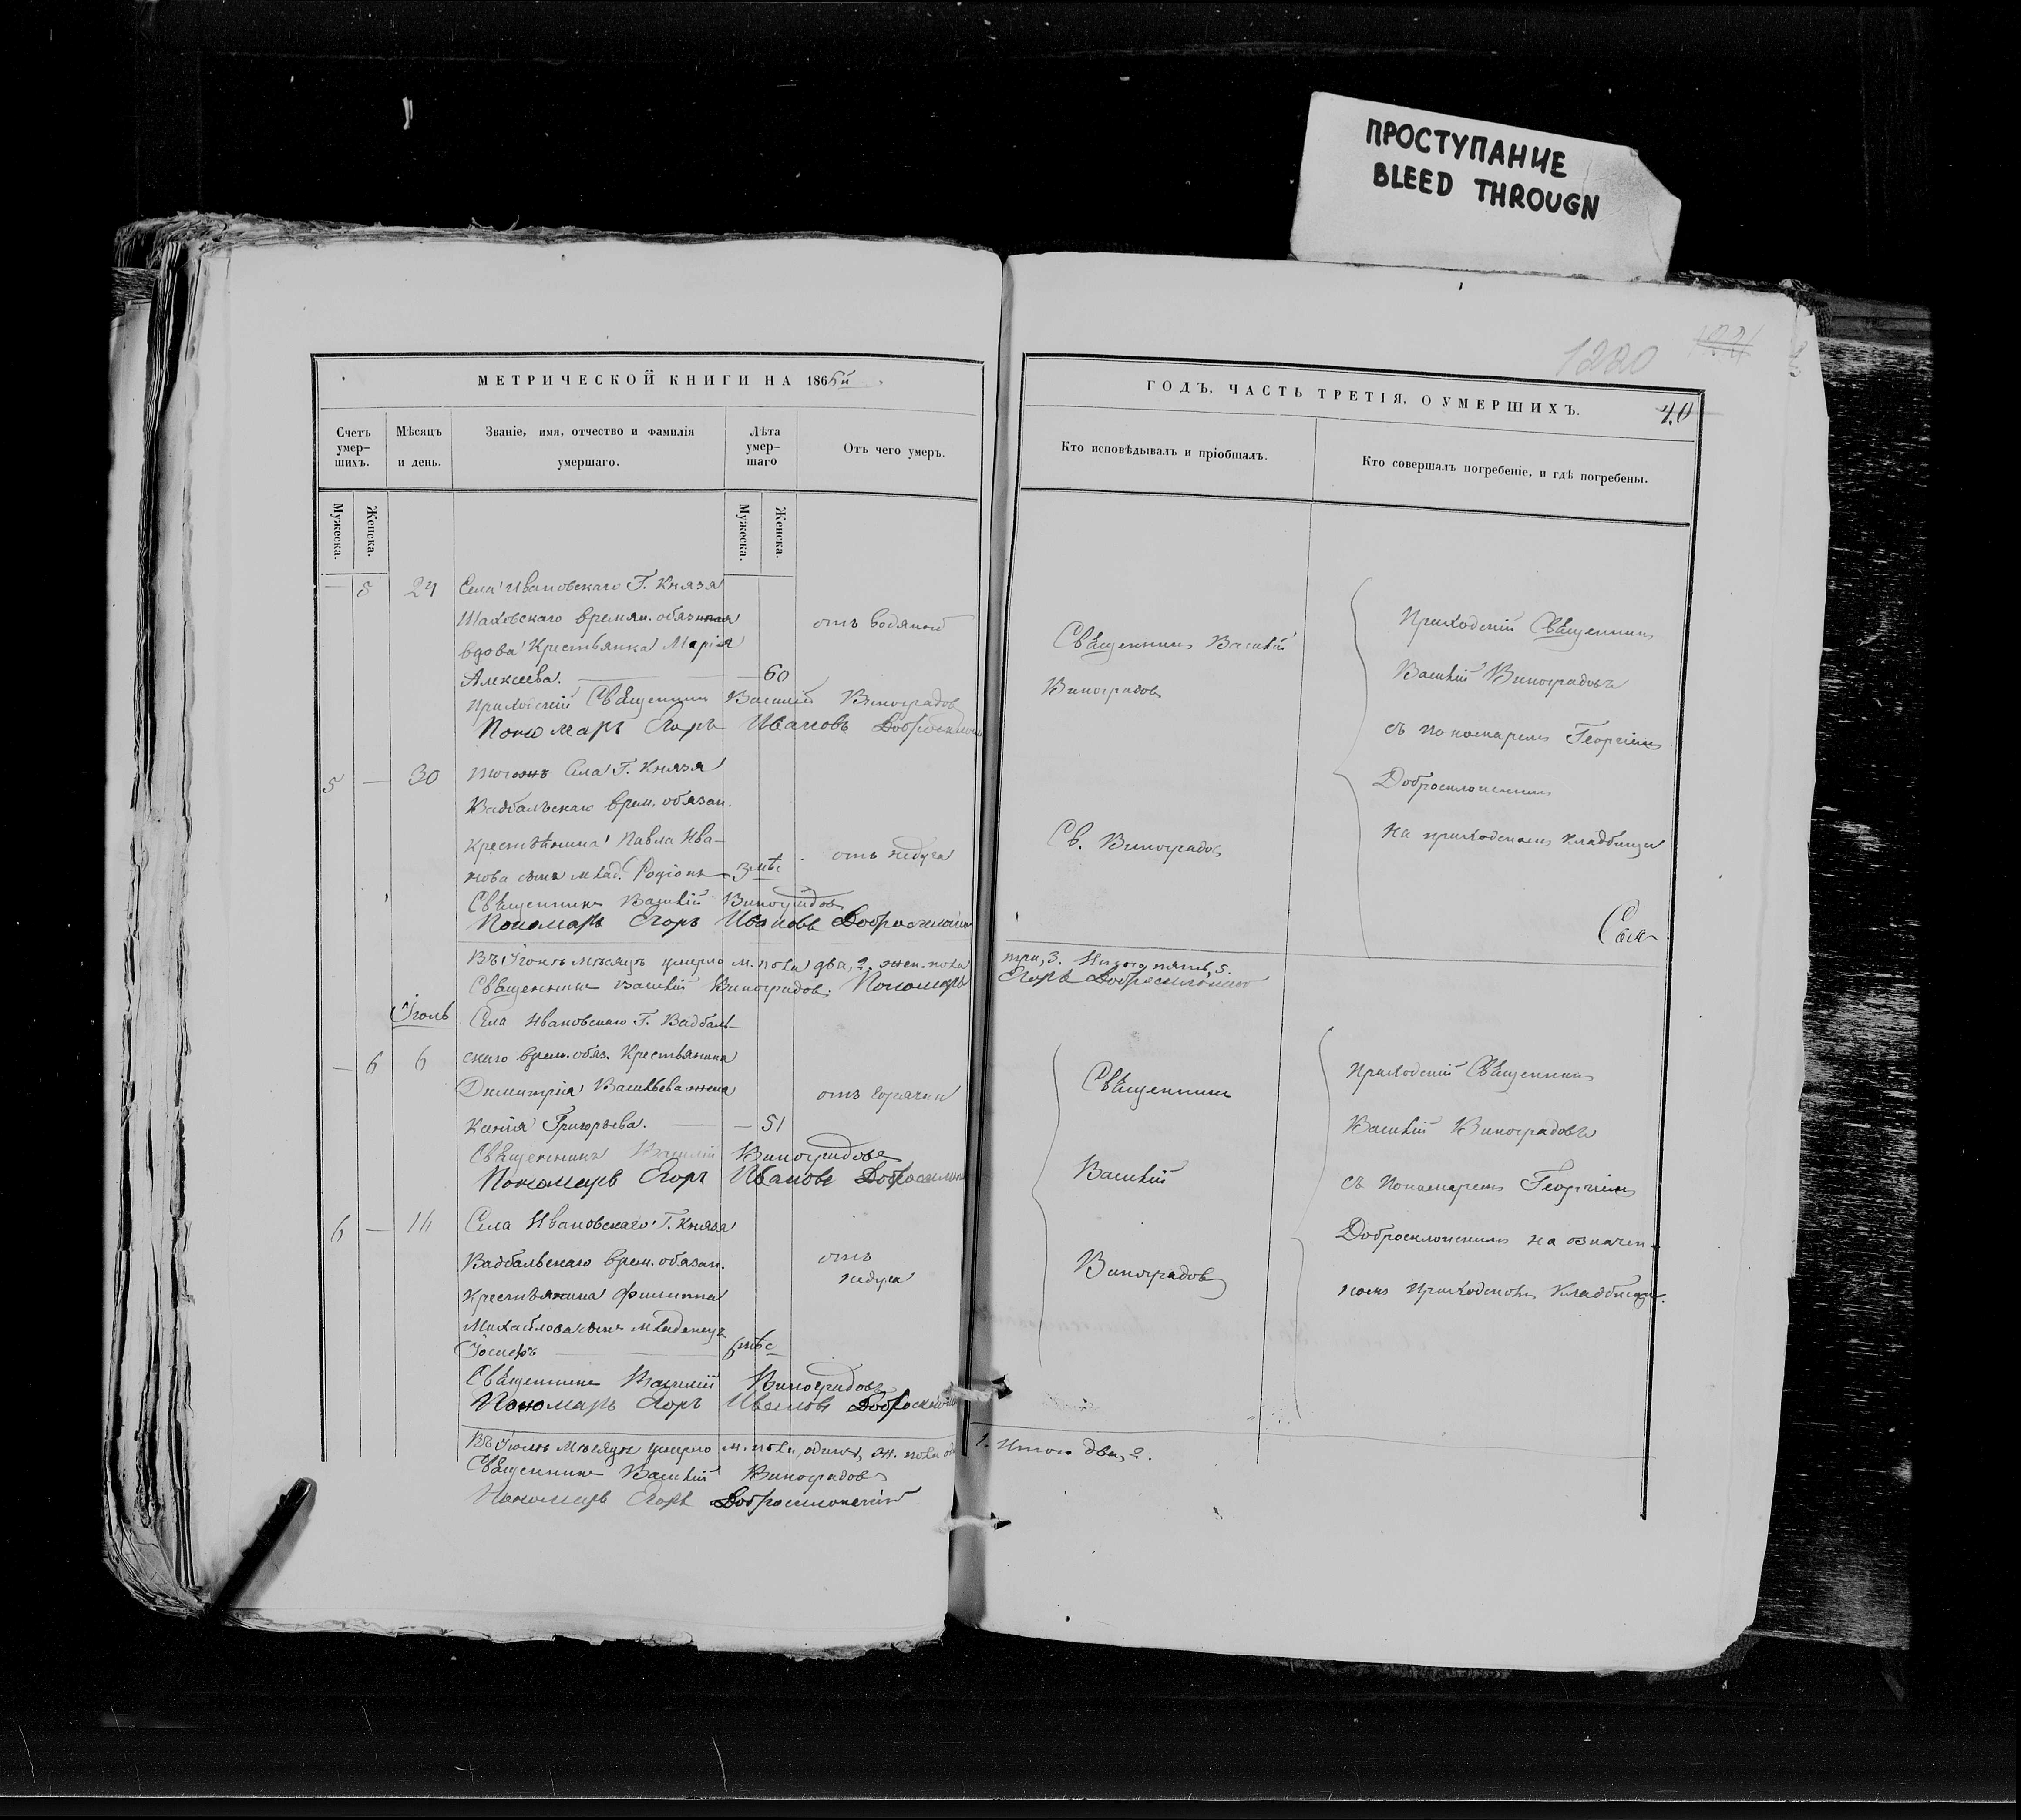 ПРОСТУПАНИЕ
BLEED THROUGN
1220
МЕТРИЧЕСКОЙ КНИГИ НА 1865й
ГОДЪ. ЧАСТЬ ТРЕТІЯ, О УМЕРШИХЪ.
40
Счетъ умер-шихъ.
Мѣсяцъ и день.
Званіе, имя, отчество и фамилія умершаго.
Лѣта умер-шаго
Отъ чего умеръ.
Кто исповѣдывалъ и пріобщалъ.
Кто совершалъ погребеніе, и гдѣ погребены.
Мужеска.
Женска.
Мужеска.
Женска.
— 5 24 Села Ивановскаго Г. Князя
Шаховскаго времян. обязанная
вдова Крестьянка Марія
Алексѣева. — 60
отъ водяной
Приходскій Священникъ Василій Виноградовъ
Пономарь Егоръ Ивановъ Добросклон
Священникъ Василій
Виноградовъ
Приходскій Священникъ
Василій Виноградовъ
съ пономаремъ Георгіемъ
Добросклонскимъ
на приходскомъ кладбищѣ
5 — 30 Тогожъ Села Г. Князя
Вадбальскаго врем. обязан.
крестьянина Павла Ива-
нова сынъ млад. Родіонъ 3 мѣс
отъ недуга
Св. Виноградовъ
Священникъ Василій Виноградовъ
Пономарь Егоръ Ивановъ Добросклонск
Въ Іюнѣ мѣсяцѣ умерло м. пола два, 2. жен. пола три, 3. Итого пять, 5.
Священникъ Василій Виноградовъ. Пономарь Егоръ Добросклонскій
Іюль
Села Ивановскаго Г. Вадбаль-
— 6 6 скаго врем. обяз. Крестьянина
Димитрія Васильева жена
Ксенія Григорьева. — 51
отъ горячки
Священникъ Василій Виноградовъ
Пономарь Егоръ Ивановъ Добросклонск
Священникъ
Василій
Виноградовъ
Приходскій Священникъ
Василій Виноградовъ
съ Пономаремъ Георгіемъ
Добросклонскимъ на означен-
номъ Приходскомъ Кладбищѣ.
6 — 16 Села Ивановскаго Г. Князя
Вадбальскаго врем. обязан.
Крестьянина Филиппа
Михайлова сынъ младенецъ
Іосифъ 6 мѣс
отъ
недуга
Священникъ Василій Виноградовъ
Пономарь Егоръ Ивановъ Добросклонск
Въ Іюлѣ мѣсяцѣ умерло м. пола, одинъ, ж. пола 1. Итого два, 2.
Священникъ Василій Виноградовъ
Пономарь Егоръ Добросклонскій